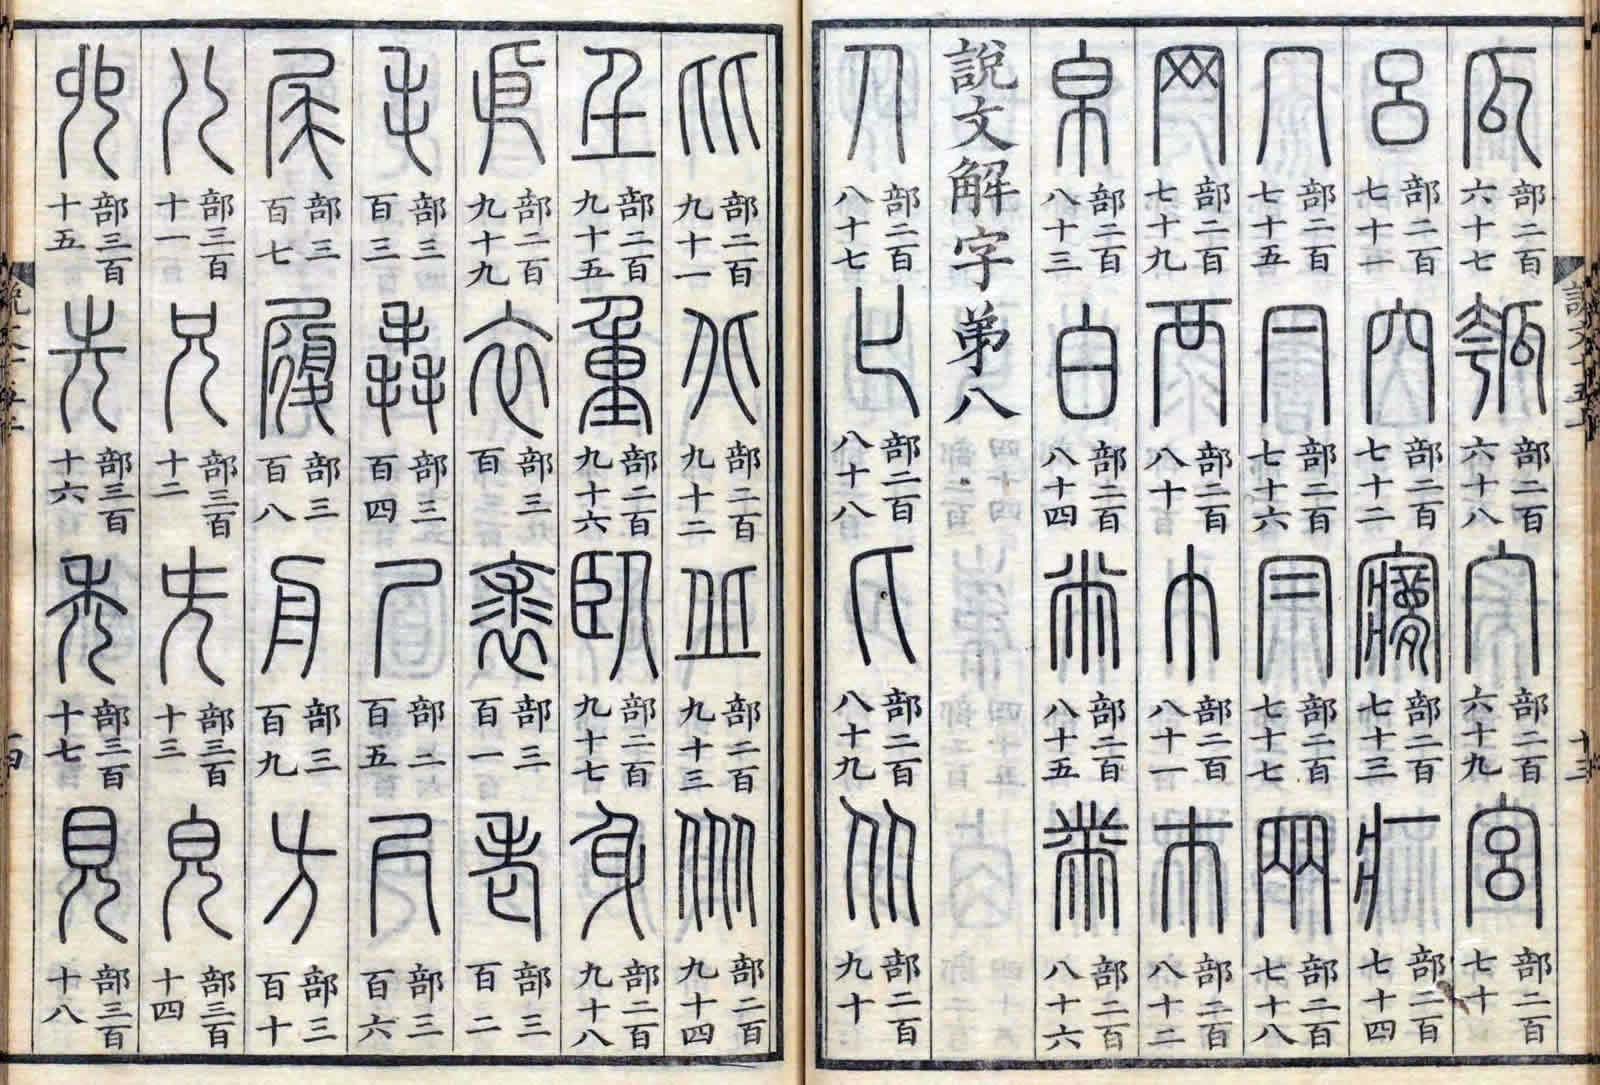 瓜部二百六十七瓠部二百六十八宀部二百六十九宮部二百七十
呂部二百七十一穴部二百七十二㝱部二百七十三疒部二百七十四
冖部二百七十五𠔼部二百七十六冃部二百七十七㒳部二百七十八
网部二百七十九襾部二百八十巾部二百八十一巿部二百八十二
帛部二百八十三白部二百八十四㡀部二百八十五黹部二百八十六
說文解字弟八
人部二百八十七𠤎部二百八十八匕部二百八十九从部二百九十
比部二百九十一北部二百九十二丘部二百九十三㐺部二百九十四
𡈼部二百九十五重部二百九十六臥部二百九十七身部二百九十八
㐆部二百九十九衣部三百裘部三百一老部三百二
毛部三百三毳部三百四尸部二百五尺部三百六
尾部三百七履部三百八舟部三百九方部三百十
儿部三百十一兄部三百十二兂部三百十三皃部三百十四
𠑹部三百十五先部三百十六秃部三百十七見部三百十八